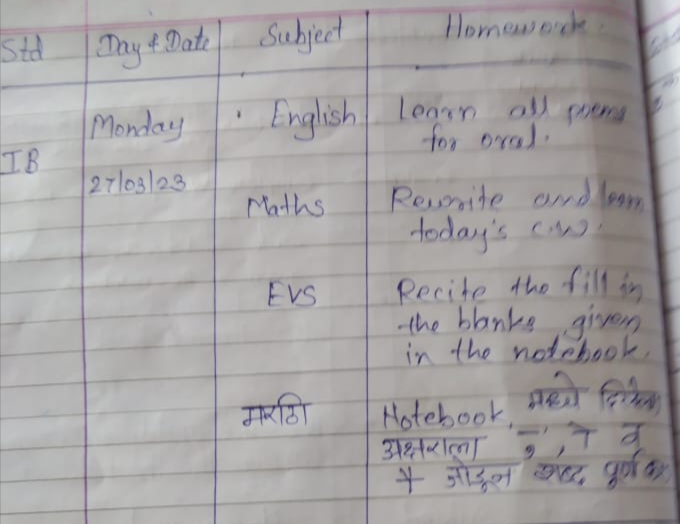 Std Day & Date Subject Homework.
Monday English Learn all poems
for oral.
IB
27/03/23
Maths Rewrite and learn
today's c.w.
EVS Recite the fill in
the blanks given
in the notebook.
मराठि Notebook मध्ये दिलेल्या
अक्षराला व
जोडून शब्द पूर्ण करा